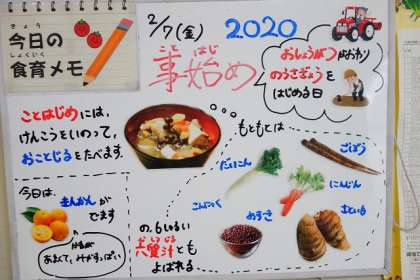 きょう
今日の
しょくいく
食育メモ
2/7(金)
2020
こと はじ
事始め
おしょうがつがおわり
のうさぎょうを
はじめる日
ことはじめには、
けんこうをいのって、
おことじるをたべます。
もともとは
だいこん
ごぼう
にんじん
こんにゃく
あずき
さといも
の、6しるい
六質汁とも
よばれる
今日は、
きんかんが
でます
かわが
あまくて、みがすっぱい